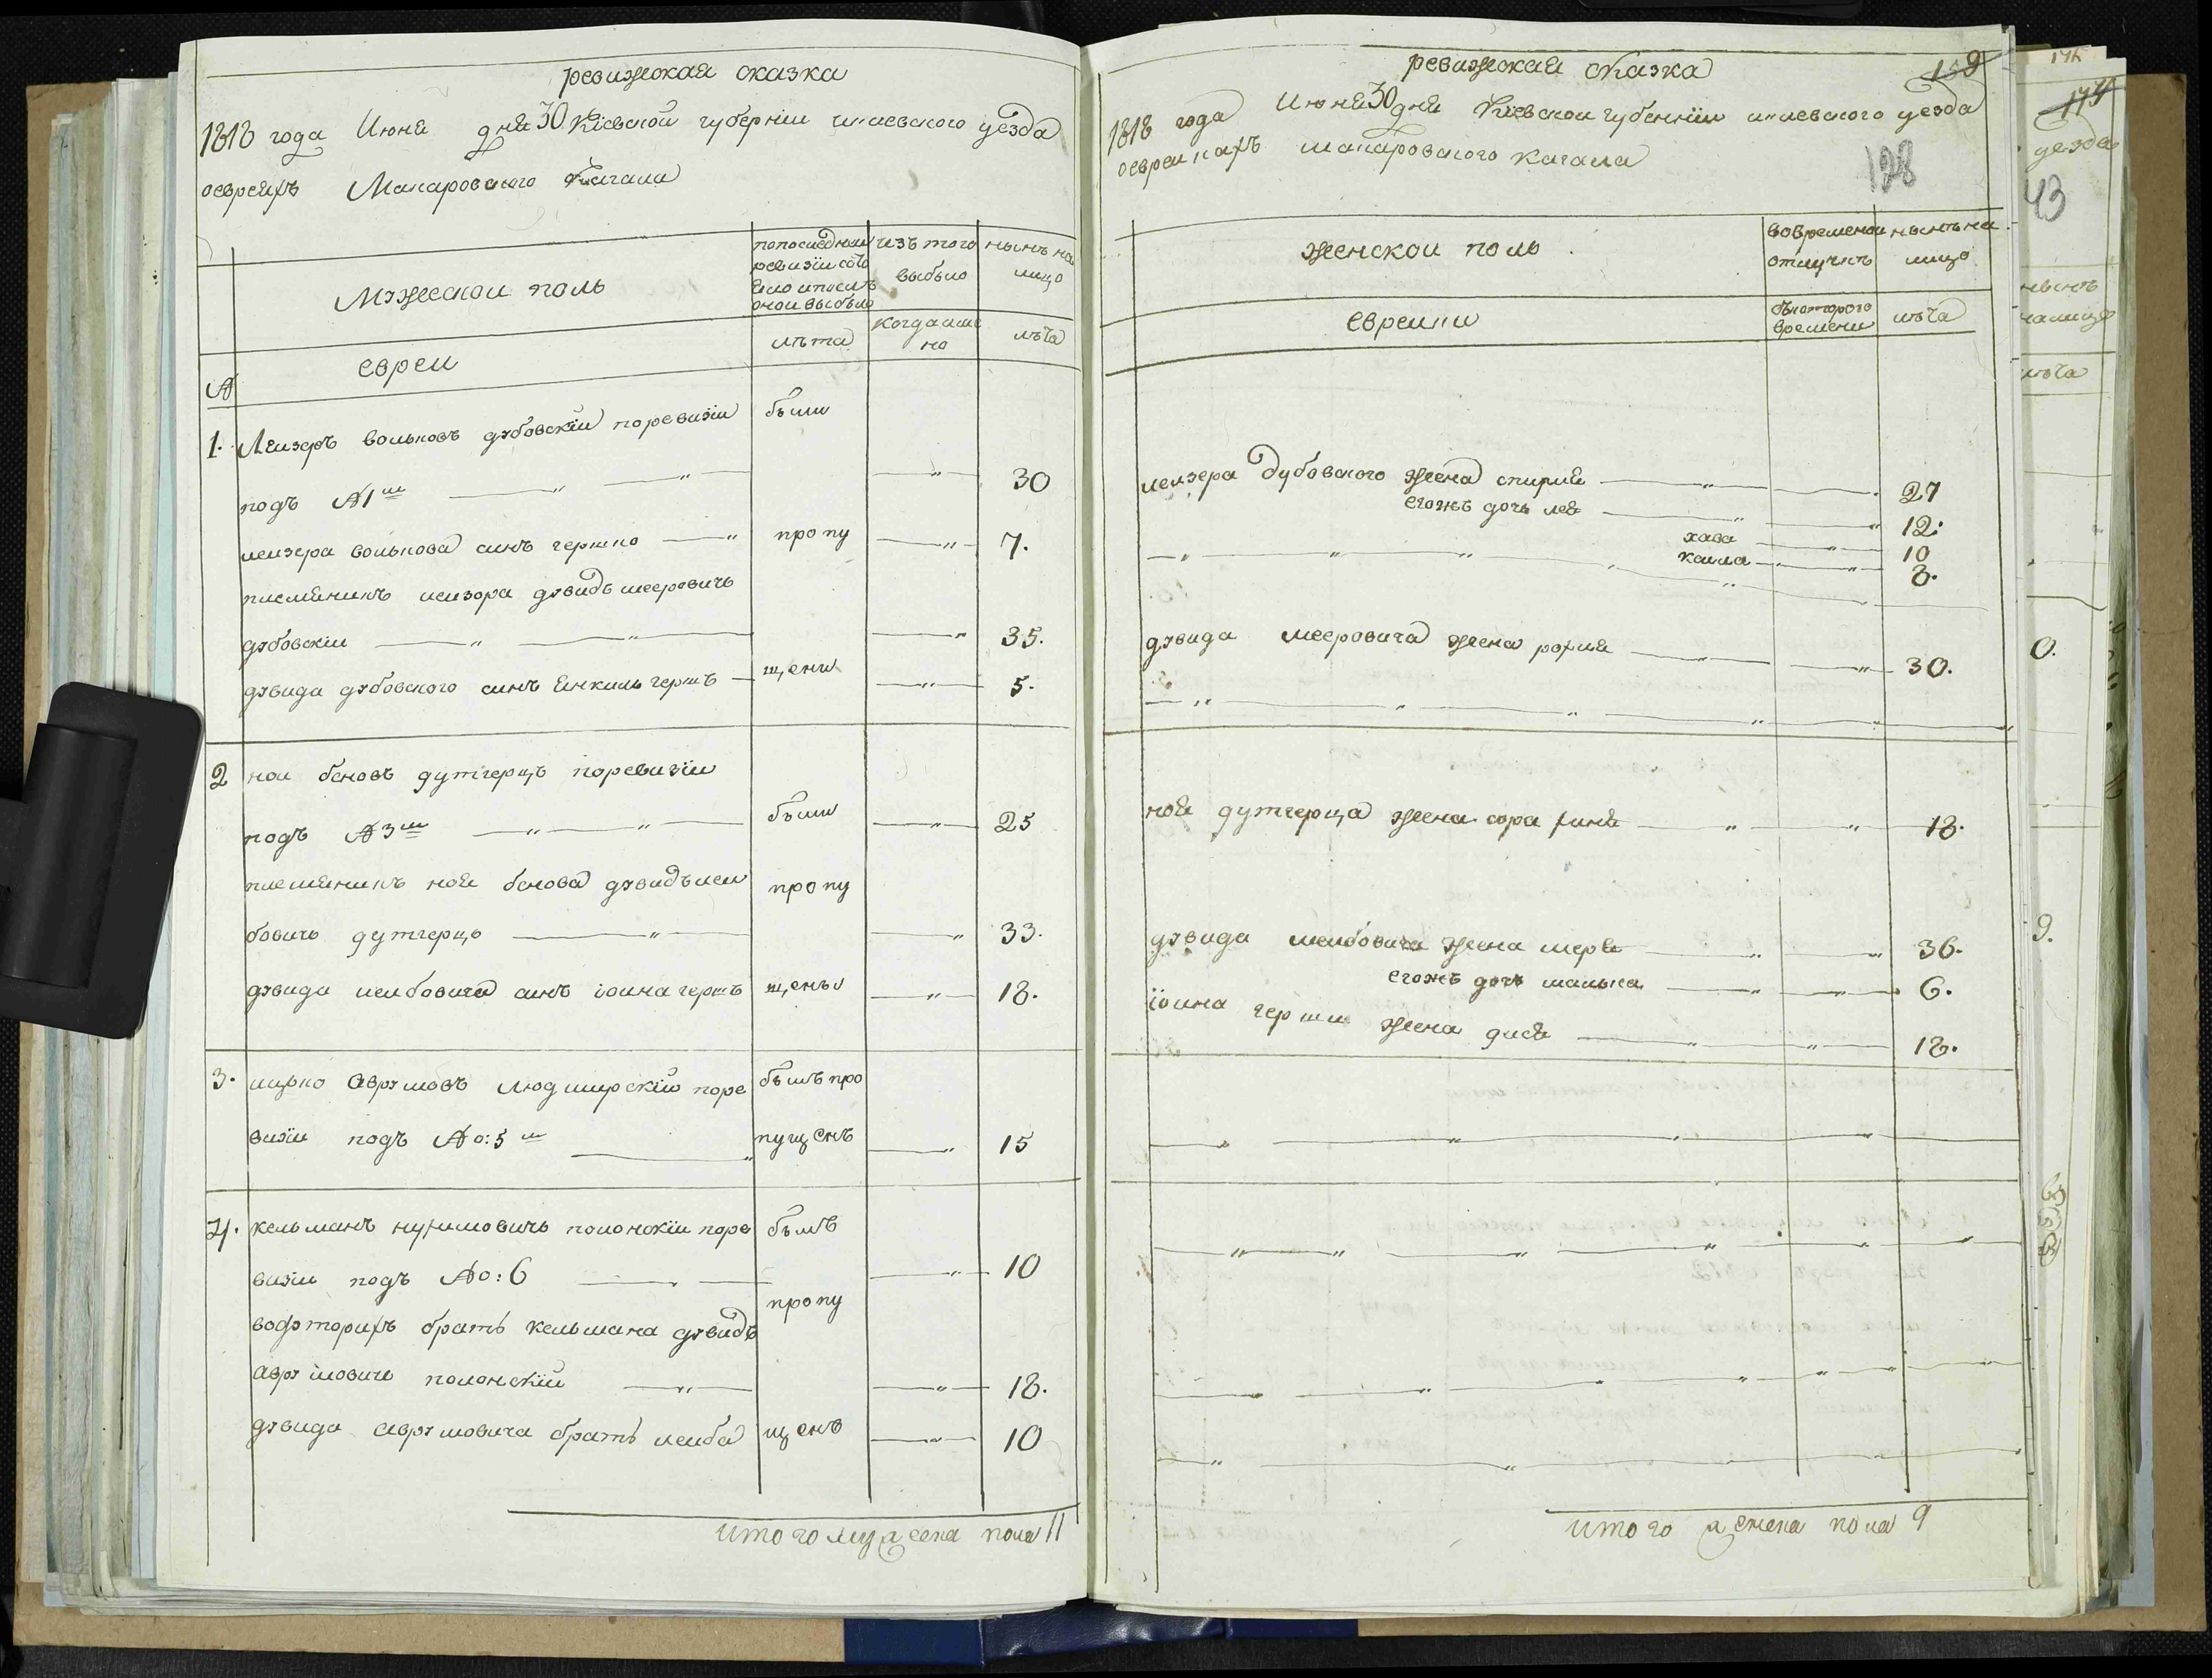 ревижская сказка
1818 года Июня дня 30 Кіевской губерніи кіевского уезда
оевреяхъ Макаровского Кагала
Мужескои полъ
попоследнеи
ревизіи состо
яло ипослѣ
онои выбыло
изъ того
выбыло
нынѣ на
лицо
евреи
лѣта
когдаиме
но
лѣта
№
1. Леизеръ вольковъ дубовскіи поревизіи
были
подъ №1м
30
леизера волькова сынъ гершко
пропу
7.
племянникъ леизора дувидъ мееровичъ
дубовскіи
35.
дувида дубовского сынъ Янкиль гершъ
щены
5.
2 нои беновъ дутгерцъ поревизіи
подъ №3м
были
25
племяникъ нои бенова дувидълеи
пропу
бовичъ дутгерцъ
33.
дувида леибовича сынъ іоина гершъ
щены
18.
3. ицько аврумовъ людмирскіи поре
былъ про
визіи подъ №: 5м
пущенъ
15
4. кельманъ нухимовичь полонскіи поре
былъ
визіи подъ №: 6
10
вофторихъ братъ кельмана дувидъ
пропу
аврумовичь полонскіи
18.
дувида аврумовича братъ леиба
щенъ
10
итого мужеска пола 11
ревижская сказка
159
1818 года Июня 30 дня Кіевской губернии кіевского уезда
оевреикахъ макаровского кагала
128
женскои полъ
вовременои
отлучкѣ
нынѣ на
лицо
евреики
скоторого
времени
лѣта
леизера дубовского жена спирия
27
егожъ дочь лея
12.
хава
10
каила
8.
дувида мееровича жена рохля
30.
нои дутгерца жена сора финя
18.
дувида леибовича жена мервя
36.
егожъ дочь малька
6.
іоина герши жена дися
18.
итого женска пола 9
174
уезда
43
нынѣ
налицо
лѣта
0.
9.